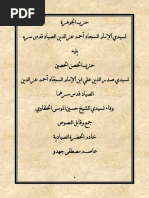 حزب الجوهرة
لسيدي الإمام السجاد أحمد عز الدين الصياد قدس سره
يليه
حزب الحصن الحصين
لسيدي صدر الدين علي ابن الإمام السجاد أحمد عز الدين
الصياد قدس سرهما
وفاء لسيدي الشيخ حسين الموسى الخلفاوي
جمع وقابل النصوص
خادم الحضرة الصيادية
عاصد مصطفى جهدو